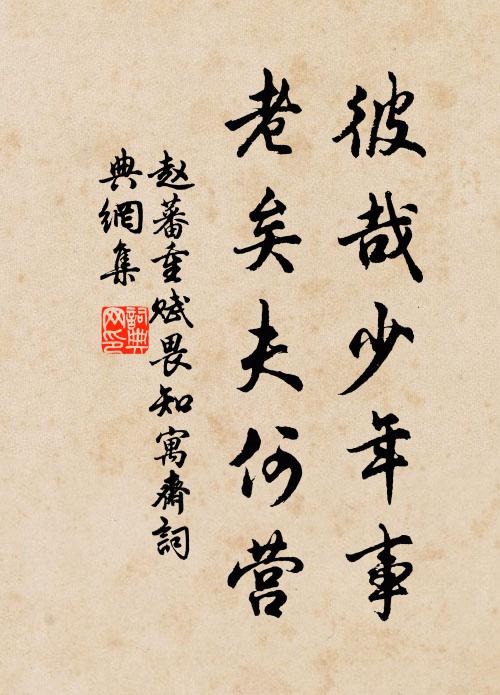 彼哉少年事
老矣夫何营
赵蕃重赋畏知寓斋詞
典網集
詞典
网印